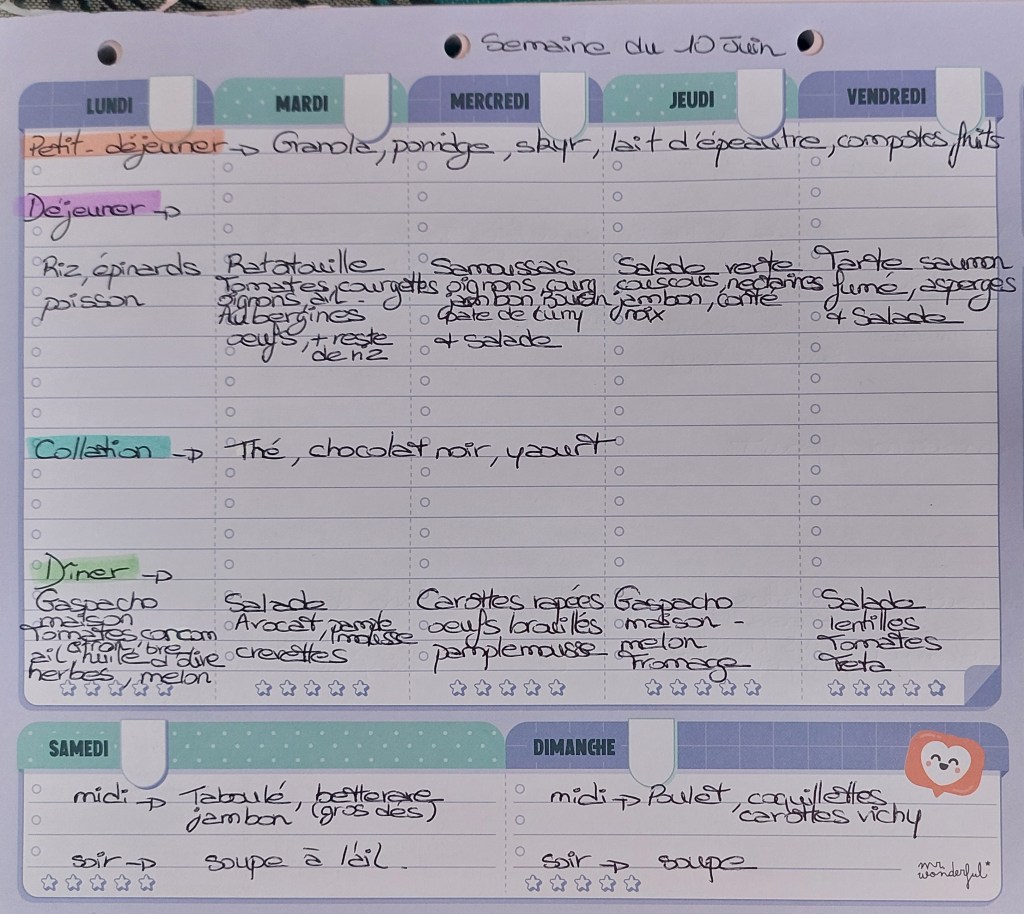 Semaine du 10 Juin
LUNDI
MARDI
MERCREDI
JEUDI
VENDREDI
Petit-déjeuner → Granola, porridge, skyr, lait d'épeautre, compotes, fruits
Déjeuner →
Riz, épinards
poisson
Ratatouille
Tomates, courgettes
oignons, ail -
Aubergines
oeufs, + reste
de riz
Samoussas
oignons, courg
jambon,
pâte de curry
+ Salade
Salade verte
couscous, nectarines
jambon, comté
noix
Tarte saumon
fumé, asperges
+ Salade
Collation → Thé, chocolat noir, yaourt
Dîner →
Gaspacho
maison
Tomates concom
citron, bre
ail, huile d'olive
herbes, melon
Salade
Avocat, pample
mousse
crevettes
Carottes rapées
oeufs brouillés
pamplemousse
Gaspacho
maison -
melon
fromage
Salade
lentilles
Tomates
feta
SAMEDI
midi → Taboulé, betterave
jambon (gros dés)
soir → soupe à l'ail.
DIMANCHE
midi → Poulet, coquillettes
carottes vichy
soir → soupe
mr
wonderful*